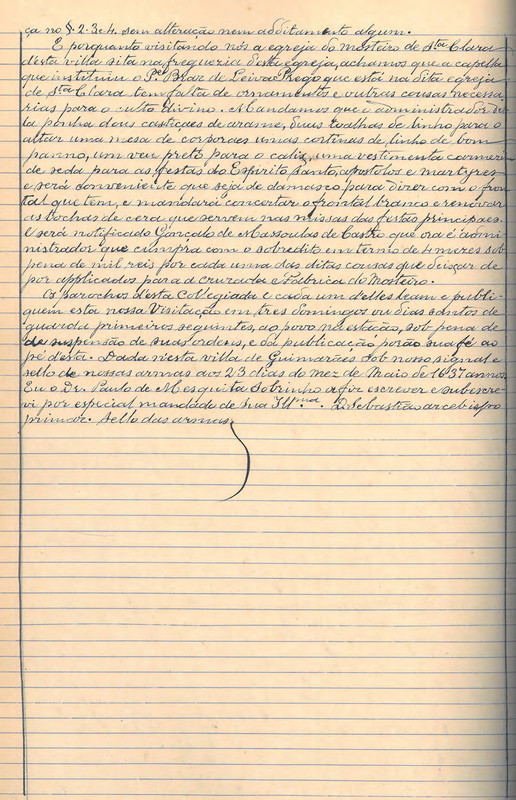 ça no § 2. 3 e 4. sem alteração nem additamento algum.
E porquanto visitando nós a egreja do mosteiro de Sta Clara
desta villa sita na freguezia desta egreja, achamos que a capella
que instituiu o Pe. Braz de Leiva Prego que está na dita egreja
de Sta Clara tem falta de ornamentos e outras cousas necessa
rias para o culto divino. Mandamos que o administrador de
la ponha dous castiçaes de arame, duas toalhas de linho para o
altar uma mesa de corporaes umas cortinas de linho de bom
panno, um veu preto para o calix, uma vestimenta carmezim
de seda para as festas do Espirito Santo, apostolos e martyres
e será conveniente que seja de damasco para dizer com o fron
tal que tem, e mandará concertar o frontal branco e renovar
as tochas de cera que servem nas missas das festas principaes.
E será notificado Gonçalo de Massoulas de Castro que ora é admi
nistrador que cumpra com o sobredito em termo de 4 mezes sob
pena de mil reis por cada uma das ditas cousas que deixar de
por applicados para a cruzada e Fabrica do Mosteiro.
Os parochos desta Collegiada e cada um delles leam e publi
quem esta nossa Visitação em tres domingos ou dias santos de
guarda primeiros seguintes, ao povo na estação, sob pena de
de suspensão de suas ordens, e da publicação porão sua fé ao
pé desta. Dada nesta villa de Guimarães sob nosso signal e
sello de nossas armas aos 23 dias do mez de Maio de 1637 annos.
Eu o Dr. Paulo de Mesquita Sobrinho a fiz escrever e subescre
vi por especial mandado de sua Illma. D. Sebastião arcebispo
primaz. Sello das armas.